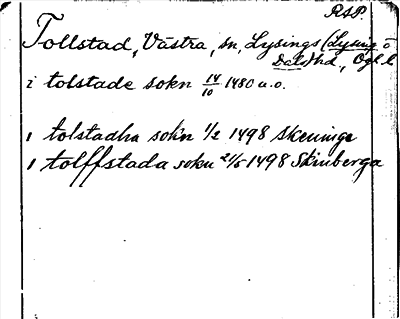 RAP.
Tollstad, Västra, sn, Lysings (Lysing o
Dals) hd, Ögl. l.
i tolstade sokn 14/10 1480 u.o.
i tolstadha sokn 1/2 1498 Skeninge
i tolffstada sokn 2/5 1498 Skinberga